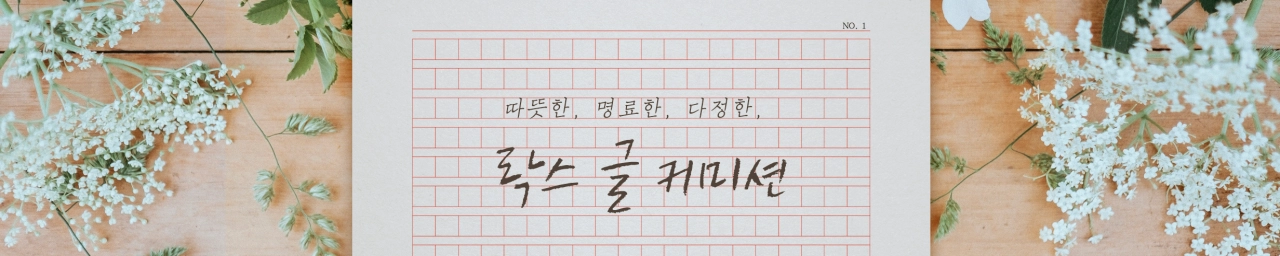 NO. 1
따뜻한, 명료한, 다정한,
락스 글 커미션